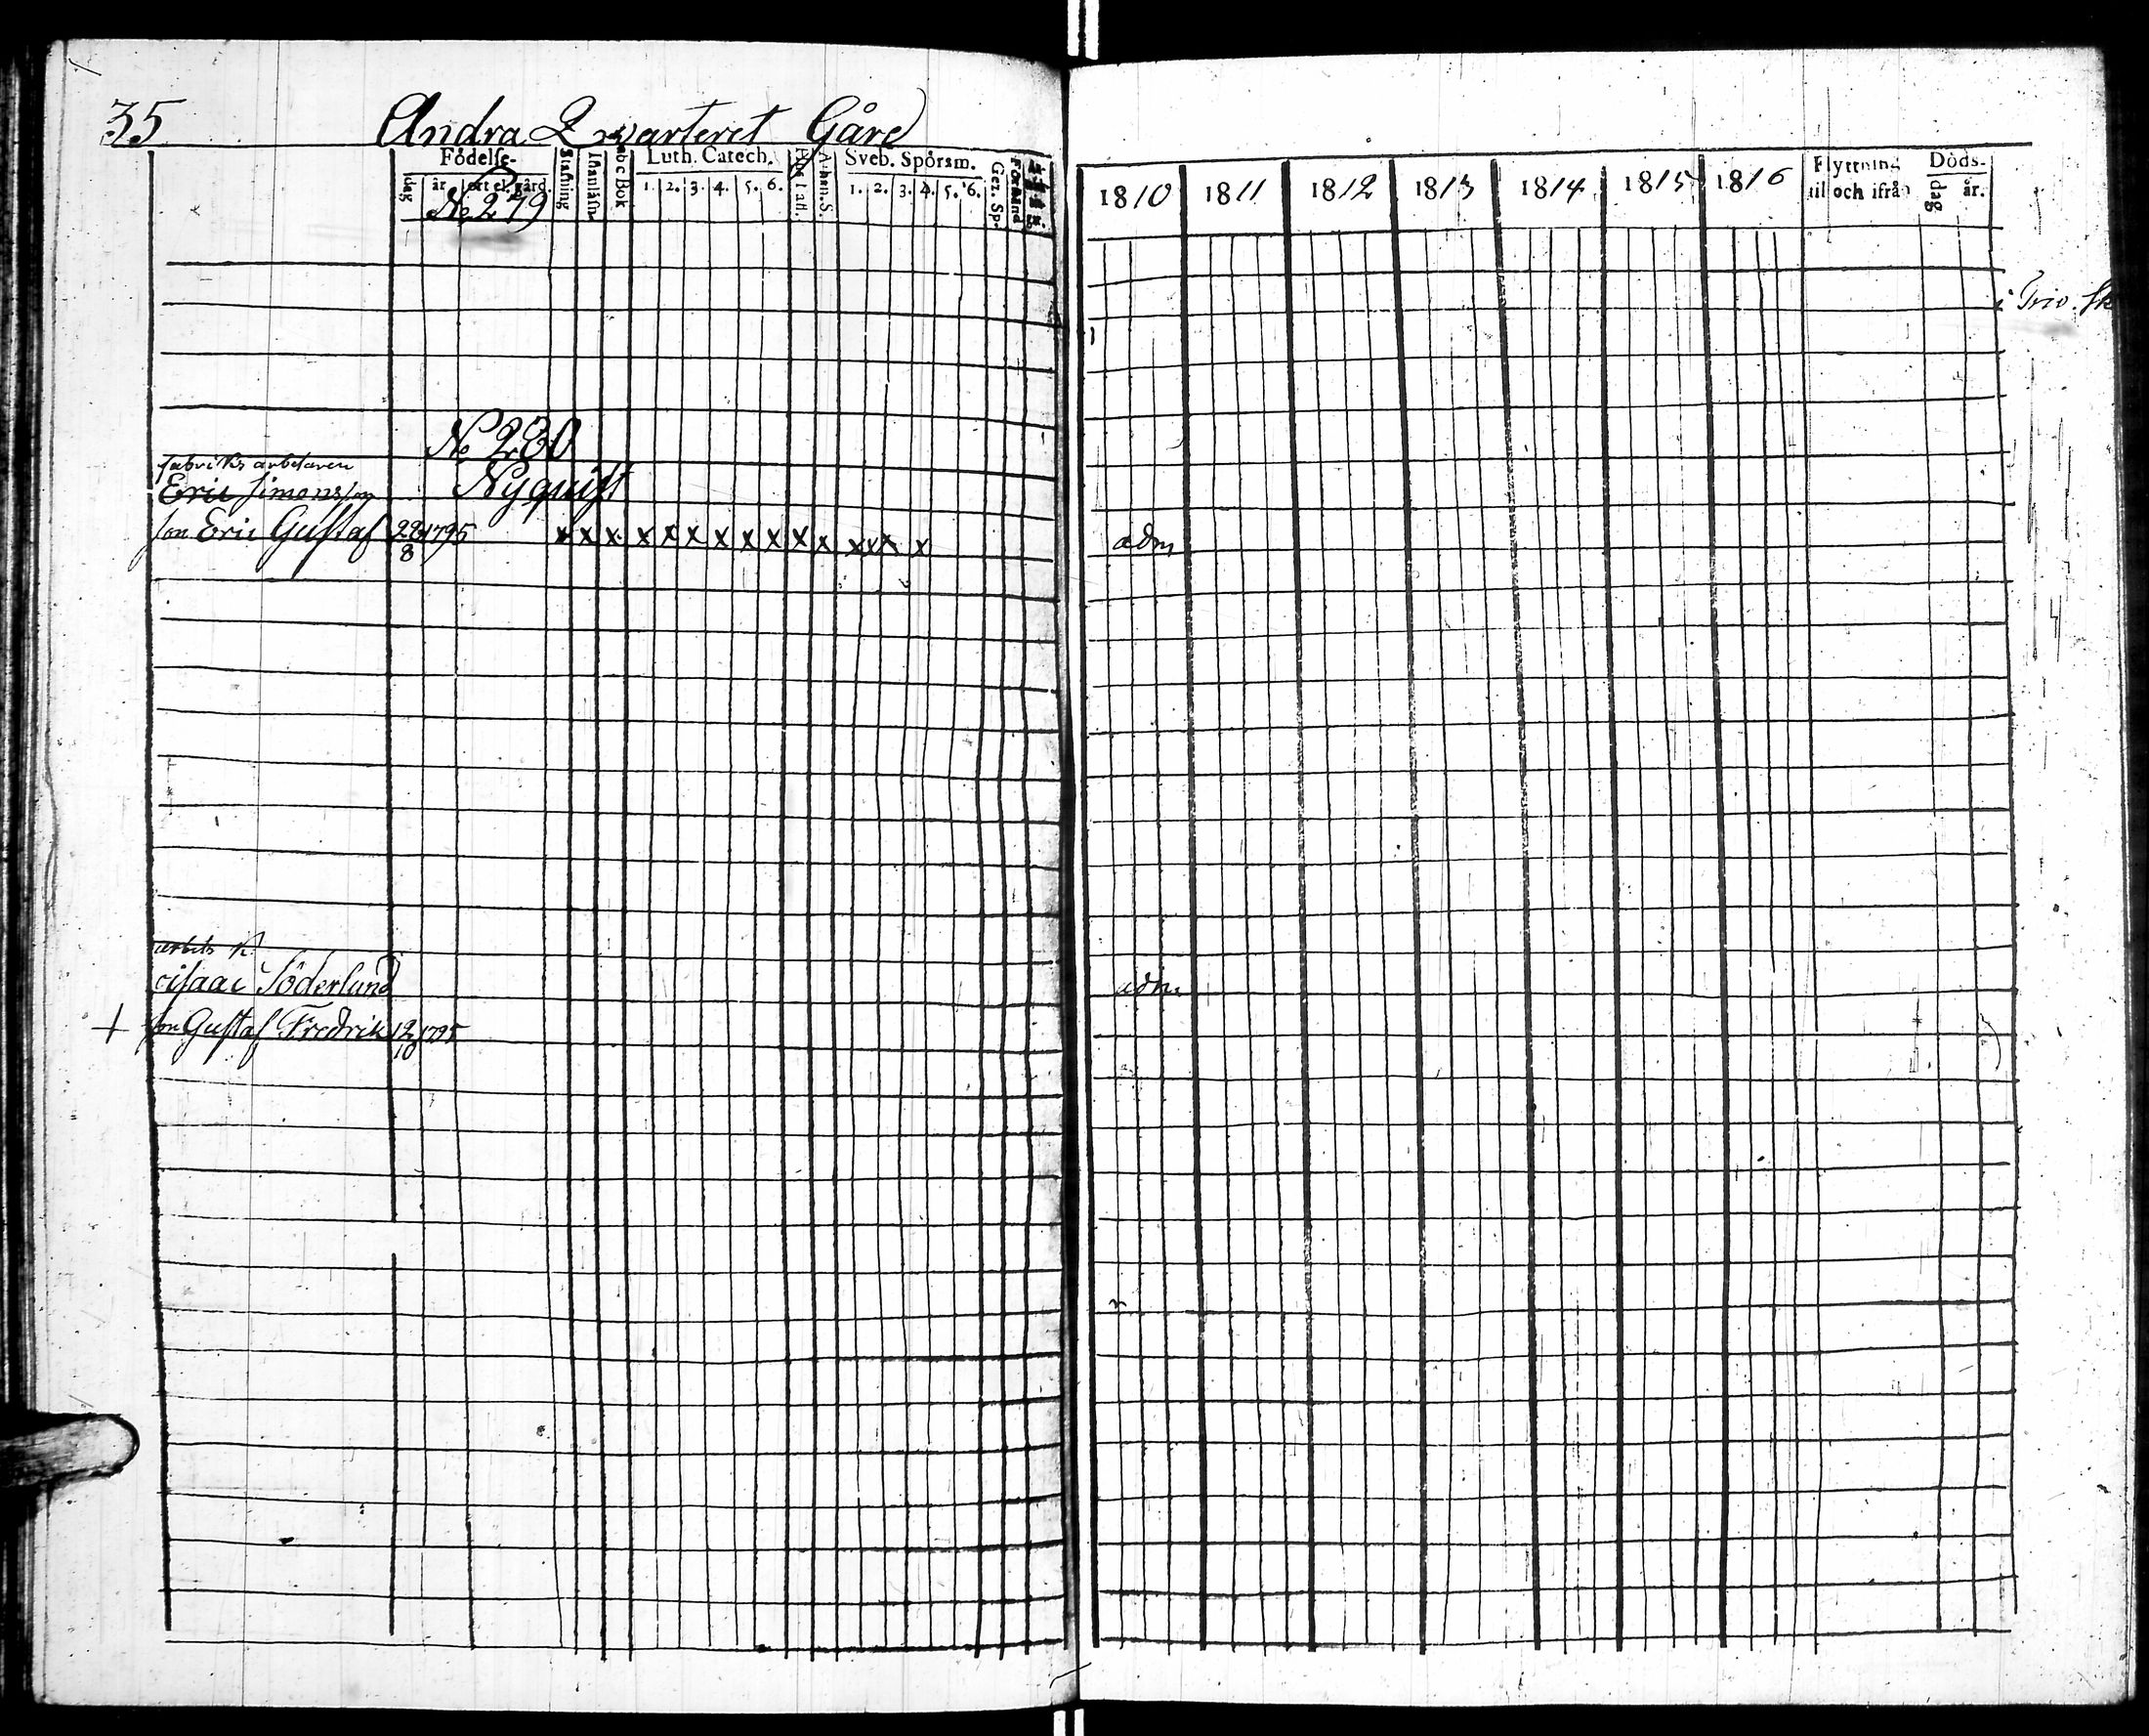 35 Andra Qwarteret Gård
Födelse- Stafning Luth. Catech. Sveb. Spörsm. Gez. Sp. Förstånd
dag år ort el. gård. abc Bok 1. 2. 3. 4. 5. 6. 1. 2. 3. 4. 5. 6.
No 279
1810 1811 1812 1813 1814 1815 1816 Flyttning till och ifrån Döds- dag år.
i Triv. Sk
No 280
fabriks arbetaren
Eric Simonsson Nyquist
son Eric Gustaf 22/8 1795 x x x x x x x x x x x x x x x adm
arbets K.
Isaac Söderlund adm
+ son Gustaf Fredrik 12/10 1795